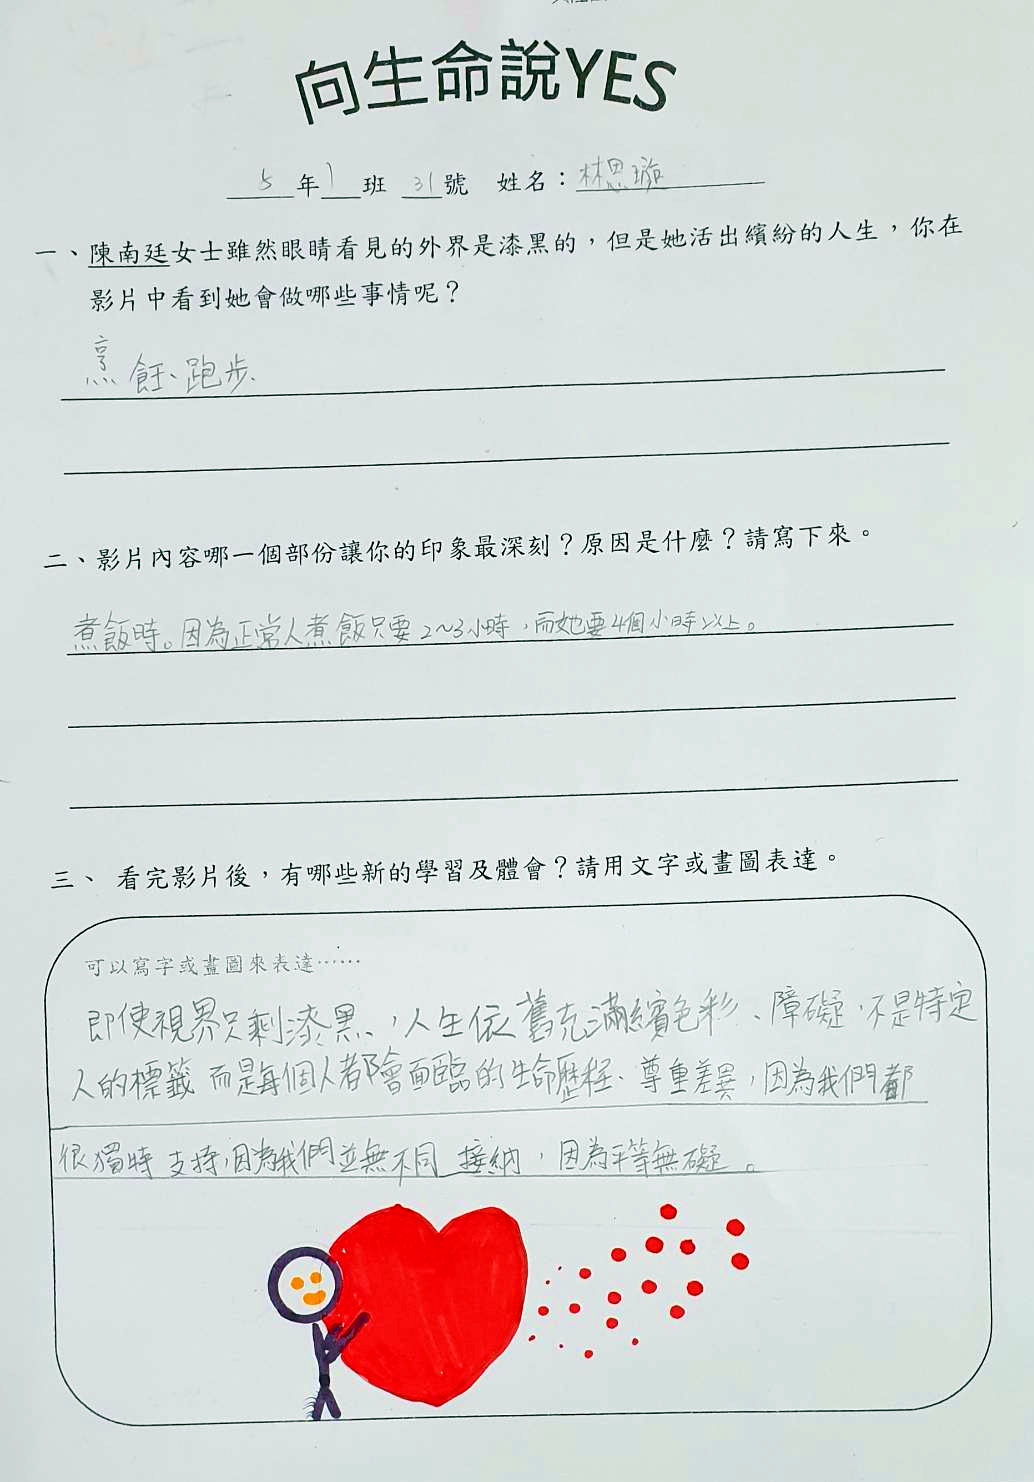 向生命說YES
5年1班 31號 姓名：林思璇
一、陳南廷女士雖然眼睛看見的外界是漆黑的，但是她活出繽紛的人生，你在
影片中看到她會做哪些事情呢？
烹飪、跑步、
二、影片內容哪一個部份讓你的印象最深刻？原因是什麼？請寫下來。
煮飯時。因為正常人煮飯只要2~3小時，而她要4個小時以上。
三、 看完影片後，有哪些新的學習及體會？請用文字或畫圖表達。
可以寫字或畫圖來表達……
即使視界只剩漆黑、，人生依舊充滿繽色彩、障礙，不是特定
人的標籤 而是每個人都會面臨的生命歷程、尊重差異，因為我們都
很獨特 支持，因為我們並無不同 接納，因為平等無礙。